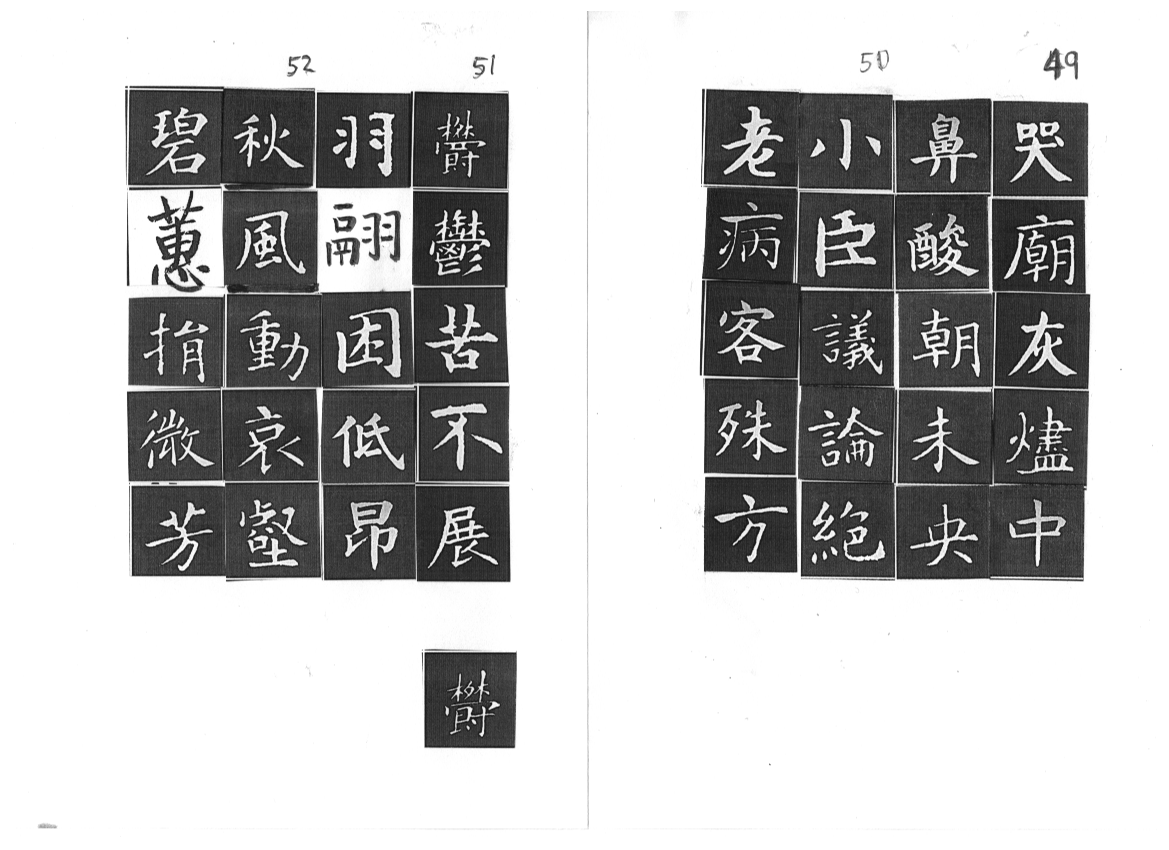 49
哭廟灰燼中
鼻酸朝未央
50
小臣議論絶
老病客殊方
51
欝鬱苦不展
羽翮困低昂
52
秋風動哀壑
碧蕙捐微芳
欝